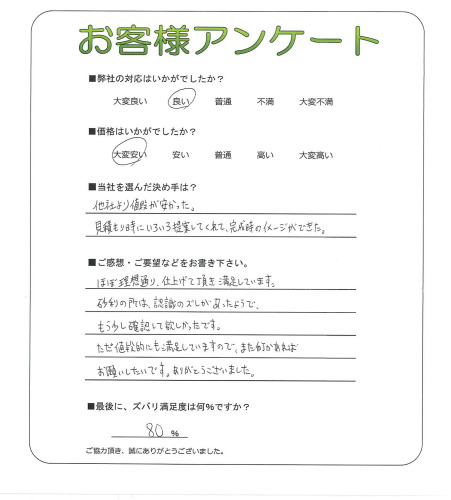 お客様アンケート
■弊社の対応はいかがでしたか？
大変良い 良い 普通 不満 大変不満
■価格はいかがでしたか？
大変安い 安い 普通 高い 大変高い
■当社を選んだ決め手は？
他社より値段が安かった。
見積もり時にいろいろ提案してくれて、完成時のイメージができた。
■ご感想・ご要望などをお書き下さい。
ほぼ理想通り、仕上げて頂き満足しています。
砂利の所は、認識のズレがあったようで、
もう少し確認して欲しかったです。
ただ値段的にも満足していますので、また何かあれば
お願いしたいです。ありがとうございました。
■最後に、ズバリ満足度は何％ですか？
80 ％
ご協力頂き、誠にありがとうございました。